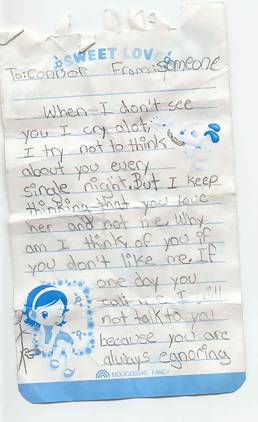 SWEET LOVE
To: connor From: Someone
When I don't see
you I cry alot,
I try not to think
about you every
single night. But I keep
thinking that you love
her and not me. Why
am I think of you if
you don't like me. If
one day you
call me I will
not talk to you
because you are
always egnoring
MOOGEEGAE FANCY